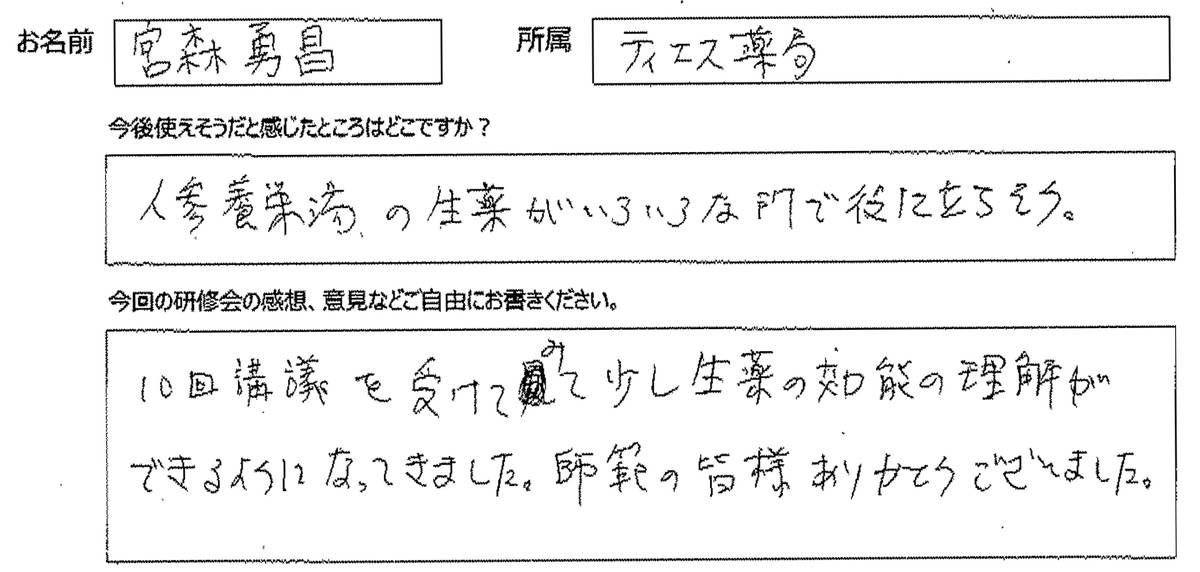 お名前 宮森勇昌 所属 ティエス薬局
今後使えそうだと感じたところはどこですか？
人参養栄湯の生薬がいろいろな所で役に立ちそう。
今回の研修会の感想、意見などご自由にお書きください。
10回講議を受けてみて少し生薬の効能の理解が
できるようになってきました。師範の皆様ありがとうございました。